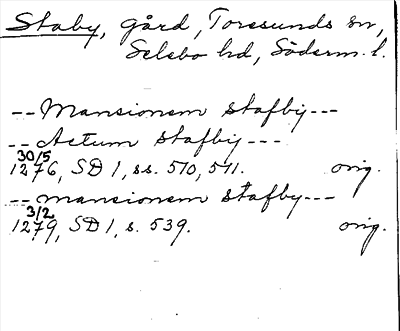 Staby, gård, Toresunds sn,
Selebo hd, Söderm. l.
-- Mansionem Stafby ---
-- Actum Stafby ---
30/5
1276, SD 1, ss. 510, 511. orig.
-- mansionem stafby ---
3/2
1279, SD 1, s. 539. orig.